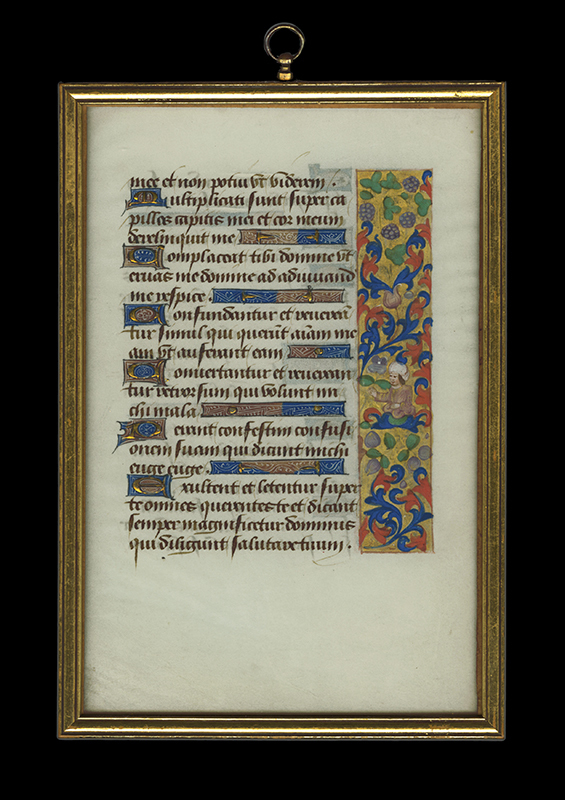 mee et non potui vt viderem .
Multiplicati sunt super ca
pillos capitis mei et cor meum
dereliquit me
Complaceat tibi domine vt
eruas me domine ad adiuuand
me respice .
Confundantur et reuerean
tur simul qui querūt aīam me
am vt auferant eam
Conuertantur et reuerean
tur retrorsum qui volunt mi
chi mala
Ferant confestim confusi
onem suam qui dicunt michi
euge euge .
Exultent et letentur super
te omnes querentes te et dicant
semper magnificetur dominus
qui diligunt salutare tuum .